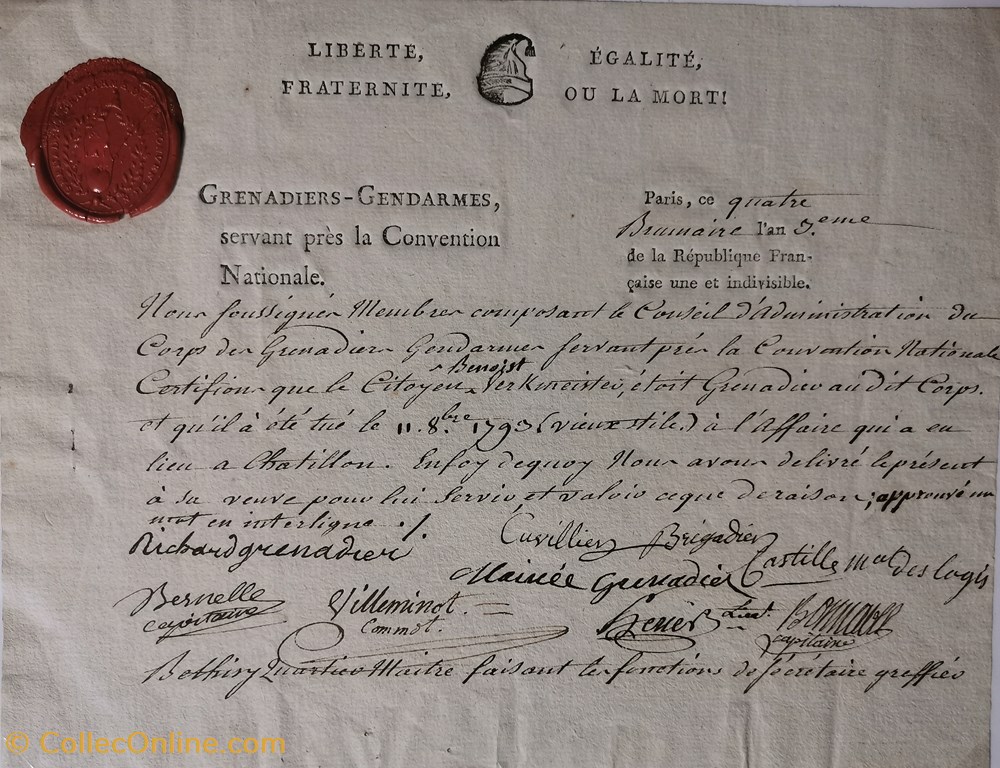 LIBERTE, ÉGALITÉ,
FRATERNITE, OU LA MORT!
GRENADIERS-GENDARMES,
servant près la Convention
Nationale.
Paris, ce quatre
Brumaire l'an 3.eme
de la République Fran-
çaise une et indivisible.
Nous soussignés Membres composant le Conseil d'Administration du
Corps des Grenadiers Gendarmes servant prés la Convention Nationale
Certifions que le Citoyen Benoist Verkineister, étoit Grenadier audit Corps.
et qu'il à été tué le 11. 8.bre 1793 (vieux stile.) à l'Affaire qui a eu
lieu a Chatillon. Enfoy dequoy Nous avons delivré le présent
à sa veuve pour lui Servir et valoir ceque deraison; approuvé un
mot en interligne ./.
Richard grenadier
Cuvillier Brigadier
Mainée Grenadier
Castille mal des logis
Bernelle
capitaine
Villeminot.
Commdt.
Lieut.
capitaine
Quartier Maitre faisant les fonctions de Sécrétaire greffier
© CollecOnline.com